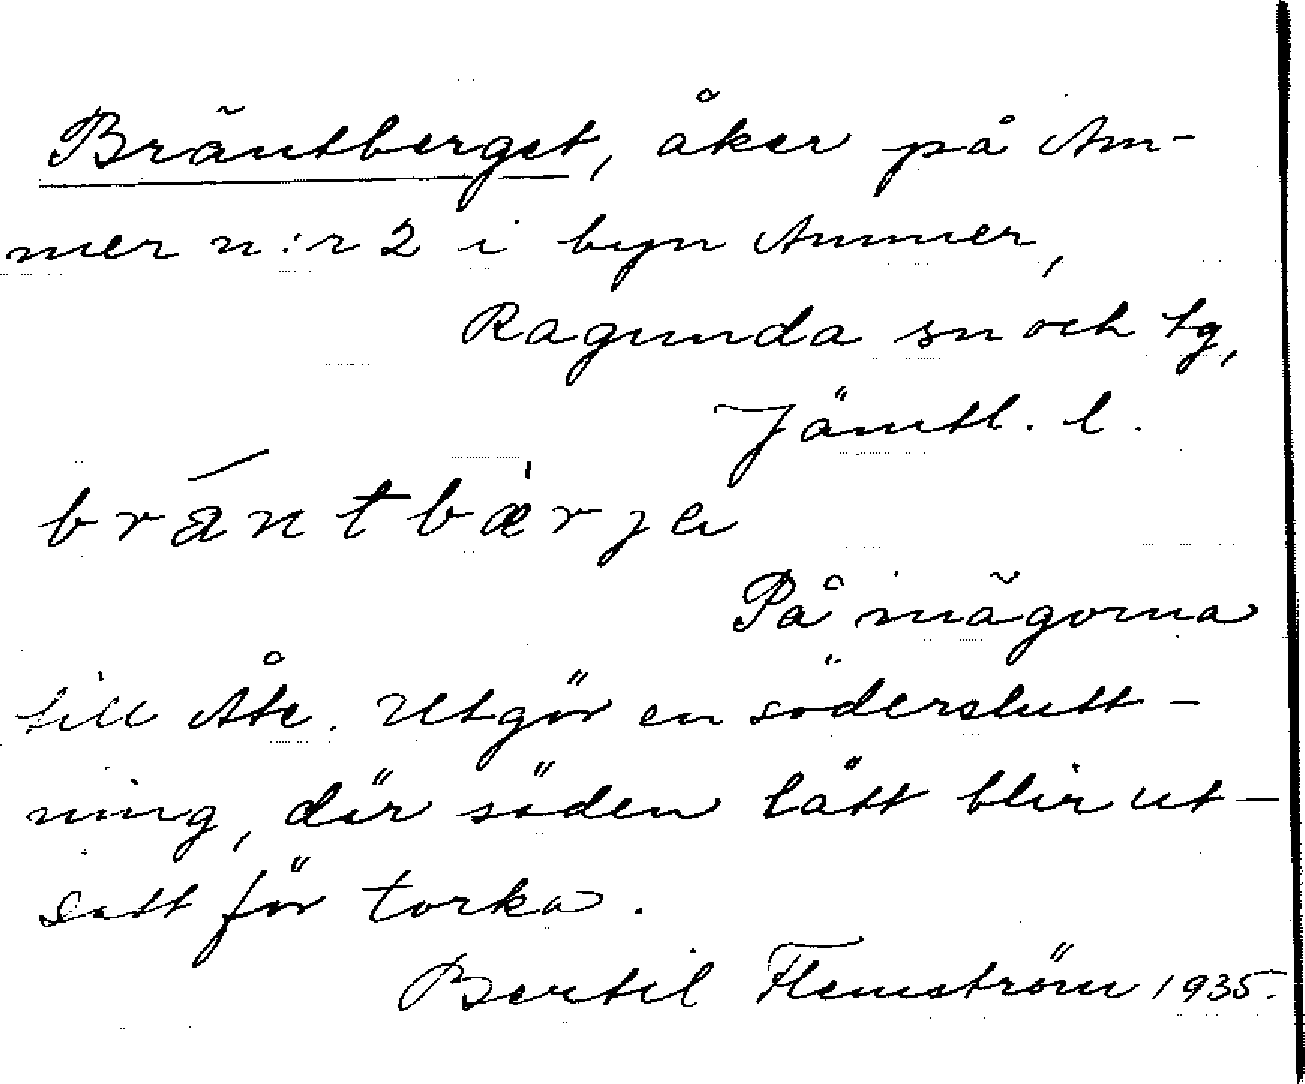 Bräntberget, åker på Am-
mer n:r 2 i byn Ammer,
Ragunda sn och tg,
Jämtl. l.
bräntbærja
På inägorna
till Åte. Utgör en söderslutt-
ning, där säden lätt blir ut-
satt för torka.
Bertil Flemström 1935.